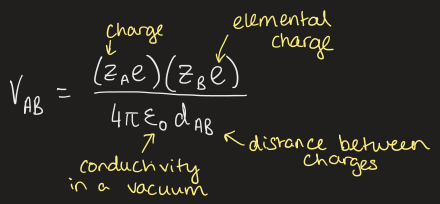 charge
elemental
charge
V_AB = (z_A e)(z_B e) / 4πε₀ d_AB
distance between
charges
conductivity
in a vacuum